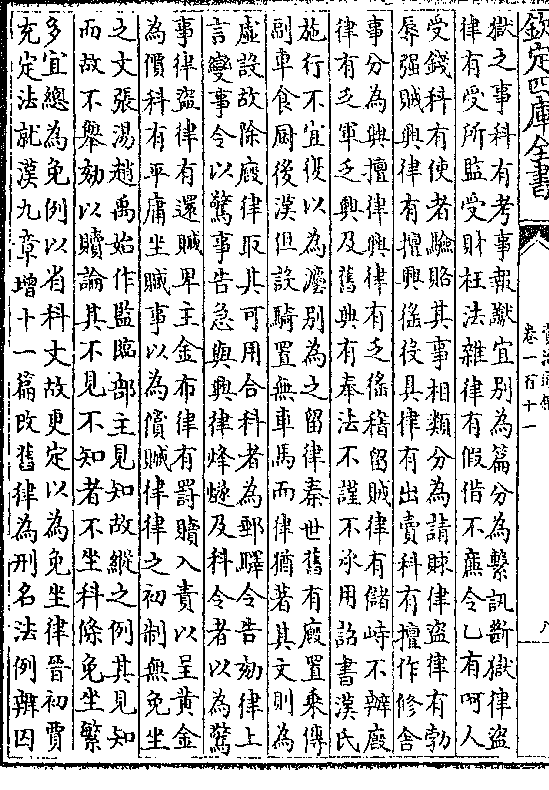 欽定四庫全書
資治通鑑
卷一百十一
八
獄之事科有考事報讞宜别為篇分為繫訊斷獄律盜
律有受所監受財枉法雜律有假借不亷令乙有呵人
受錢科有使者驗賂其事相類分為請賕律盜律有勃
辱强賊興律有擅興徭役具律有出賣科有擅作修舍
事分為興擅律興律有乏徭稽留賊律有儲峙不辦廐
律有乏軍乏興及舊典有奉法不謹不承用詔書漢氏
施行不宜復以為灋别為之留律秦世舊有廐置乘傳
副車食厨後漢但設騎置無車馬而律猶著其文則為
虛設故除廐律取其可用合科者為郵驛令告劾律上
言變事令以驚事告急與興律烽燧及科令者以為驚
事律盜律有還贓卑主金布律有罰贖入責以呈黄金
為價科有平庸坐贓事以為償贓律律之初制無免坐
之文張湯趙禹始作監臨部主見知故縱之例其見知
而故不舉劾以贖論其不見不知者不坐科條免坐繁
多宜總為免例以省科文故更定以為免坐律晉初賈
充定法就漢九章增十一篇改舊律為刑名法例辨囚